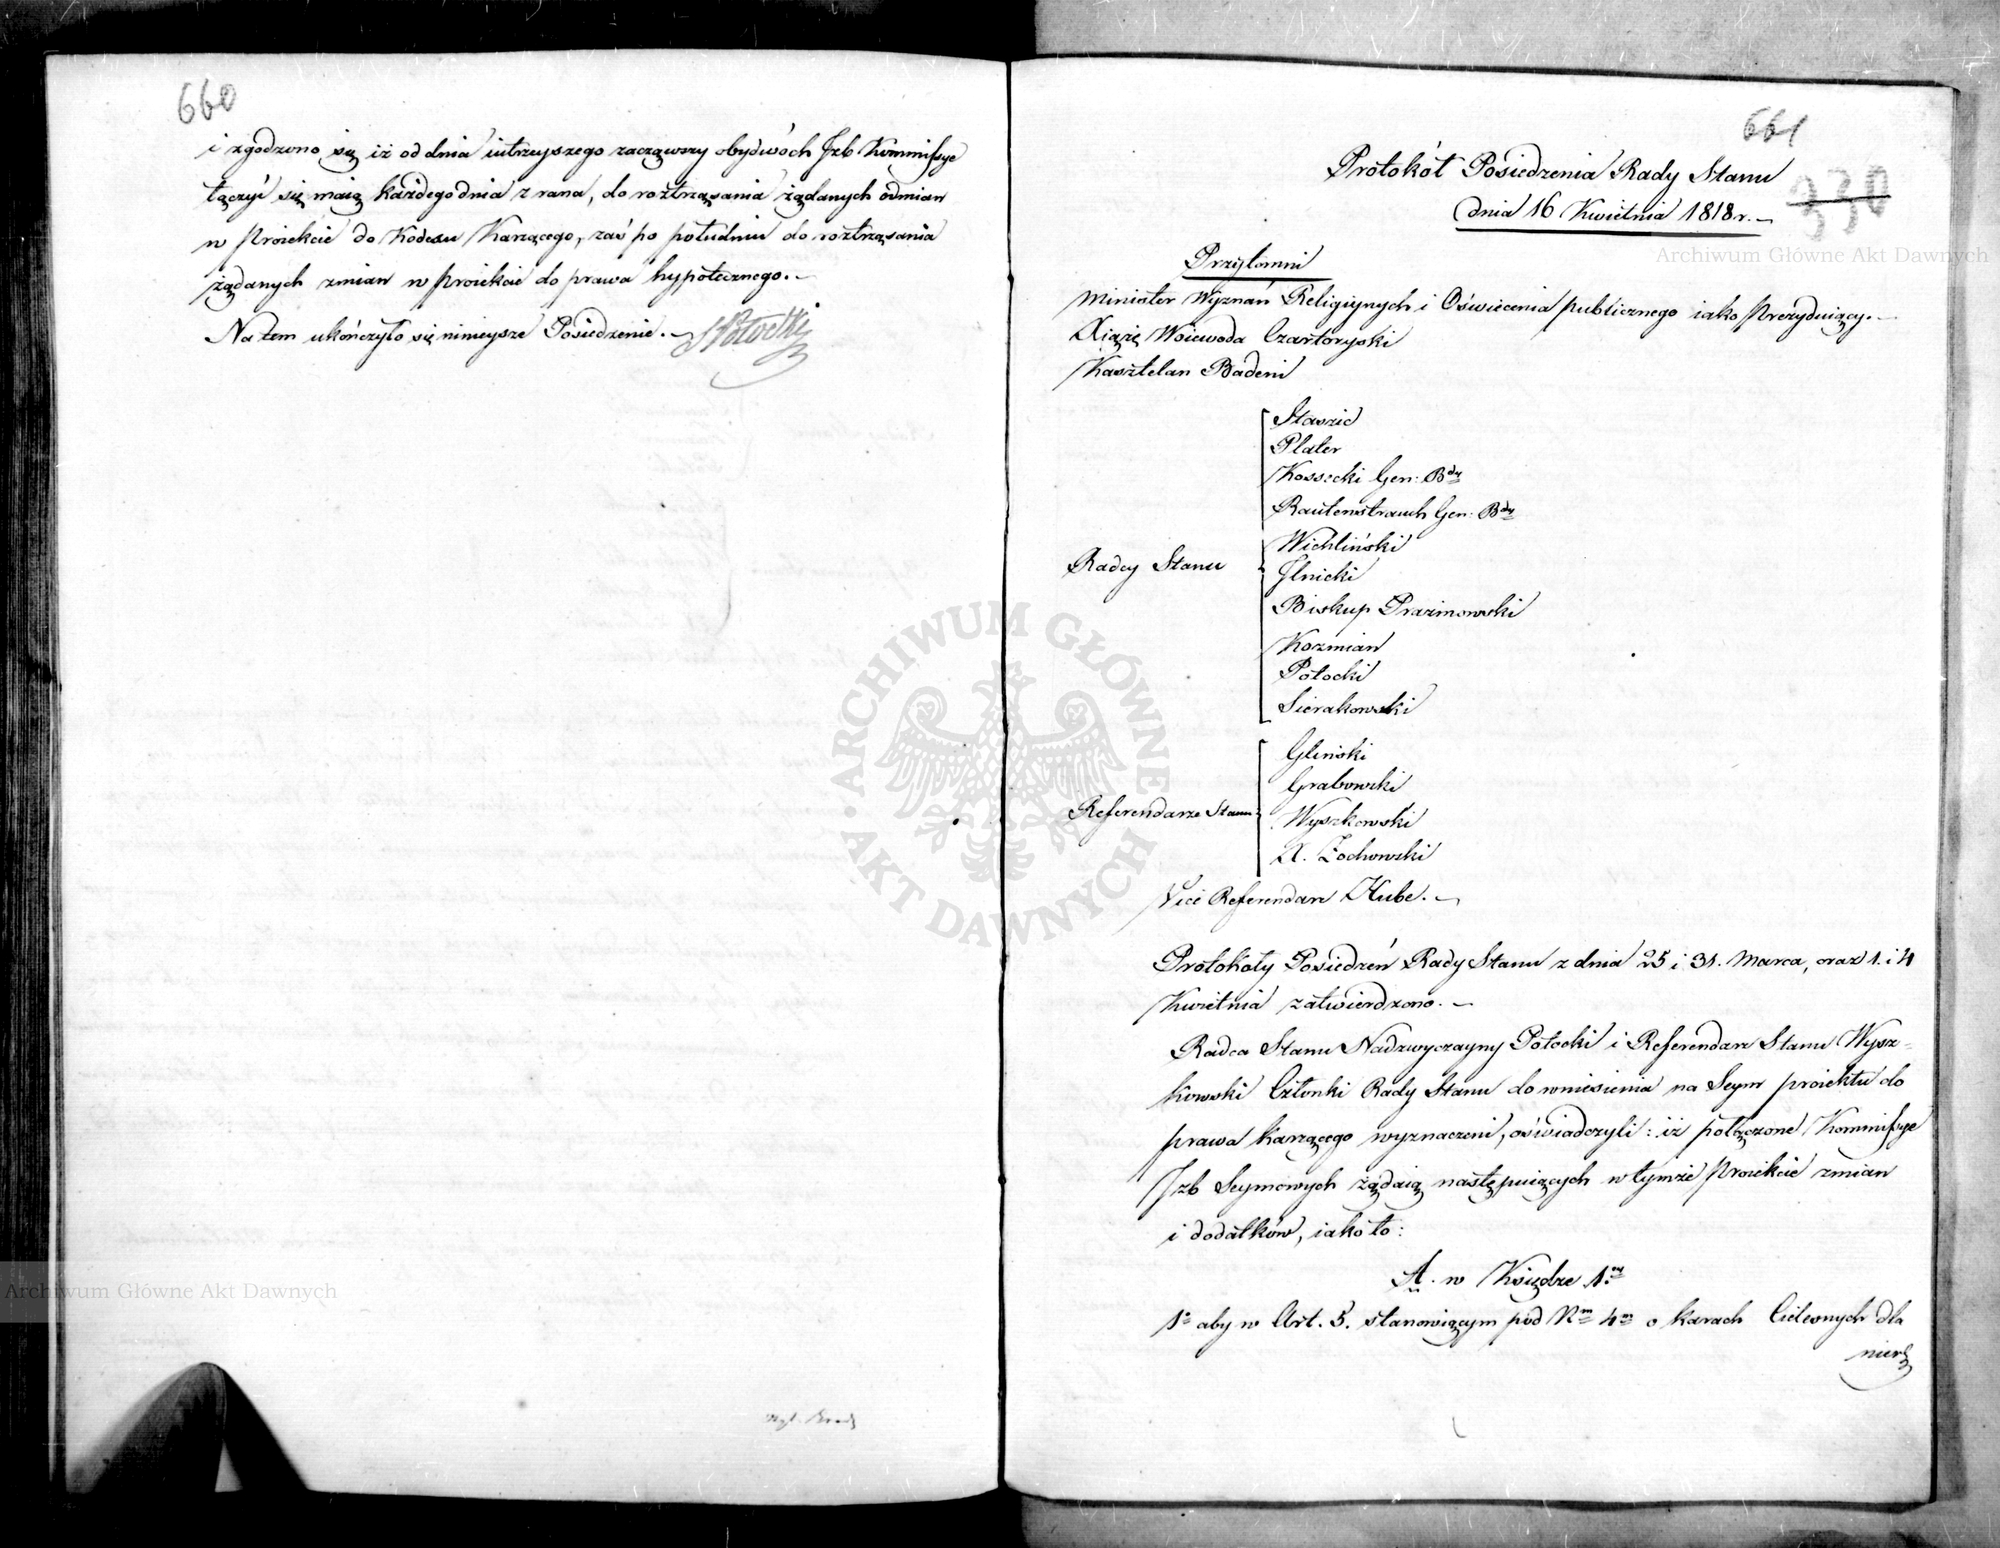 660
i zgodzono się iż od dnia iutrzeyszego zacząwszy obydwóch Jzb Kommissye
łączyć się maią każdego dnia z rana, do roztrząsania żądanych odmian
w Proiekcie do Kodexu Karzącego, zaś po południu do roztrząsania
żądanych zmian w Proiekcie do prawa hypotecznego. –
Na tem ukończyło się ninieysze Posiedzenie. – SPotocki
661
330
Protokół Posiedzenia Rady Stanu
dnia 16 Kwietnia 1818 r. –
Przytomni
Minister Wyznań Religiynych i Oświecenia publicznego iako Prezyduiący. –
Xiąże Woiewoda Czartoryski
Kasztelan Badeni
Radcy Stanu
Staszic
Plater
Kossecki Gen: Bdy
Rautenstrauch Gen: Bdy
Wichliński
Jlnicki
Biskup Prażmowski
Kozmian
Potocki
Sierakowski
Referendarze Stanu
Gliński
Grabowski
Wyszkowski
X. Żochowski
Vice Referendarz Hube. –
Protokoły Posiedzeń Rady Stanu z dnia 25 i 31. Marca, oraz 1. i 4
Kwietnia zatwierdzono. –
Radca Stanu Nadzwyczayny Potocki i Referendarz Stanu Wysz-
kowski Członki Rady Stanu do wniesienia na Seym proiektu do
prawa karzącego wyznaczeni, oświadczyli: iż połączone Kommissye
Jzb Seymowych żądaią następuiących w tymże Proiekcie zmian
i dodatków, iako to:
A. w Księdze 1ey
1o aby w Art. 5. stanowiącym pod Nm 4m o karach Cielesnych dla
nierz
Archiwum Główne Akt Dawnych
ARCHIWUM GŁÓWNE AKT DAWNYCH
Archiwum Główne Akt Dawnych